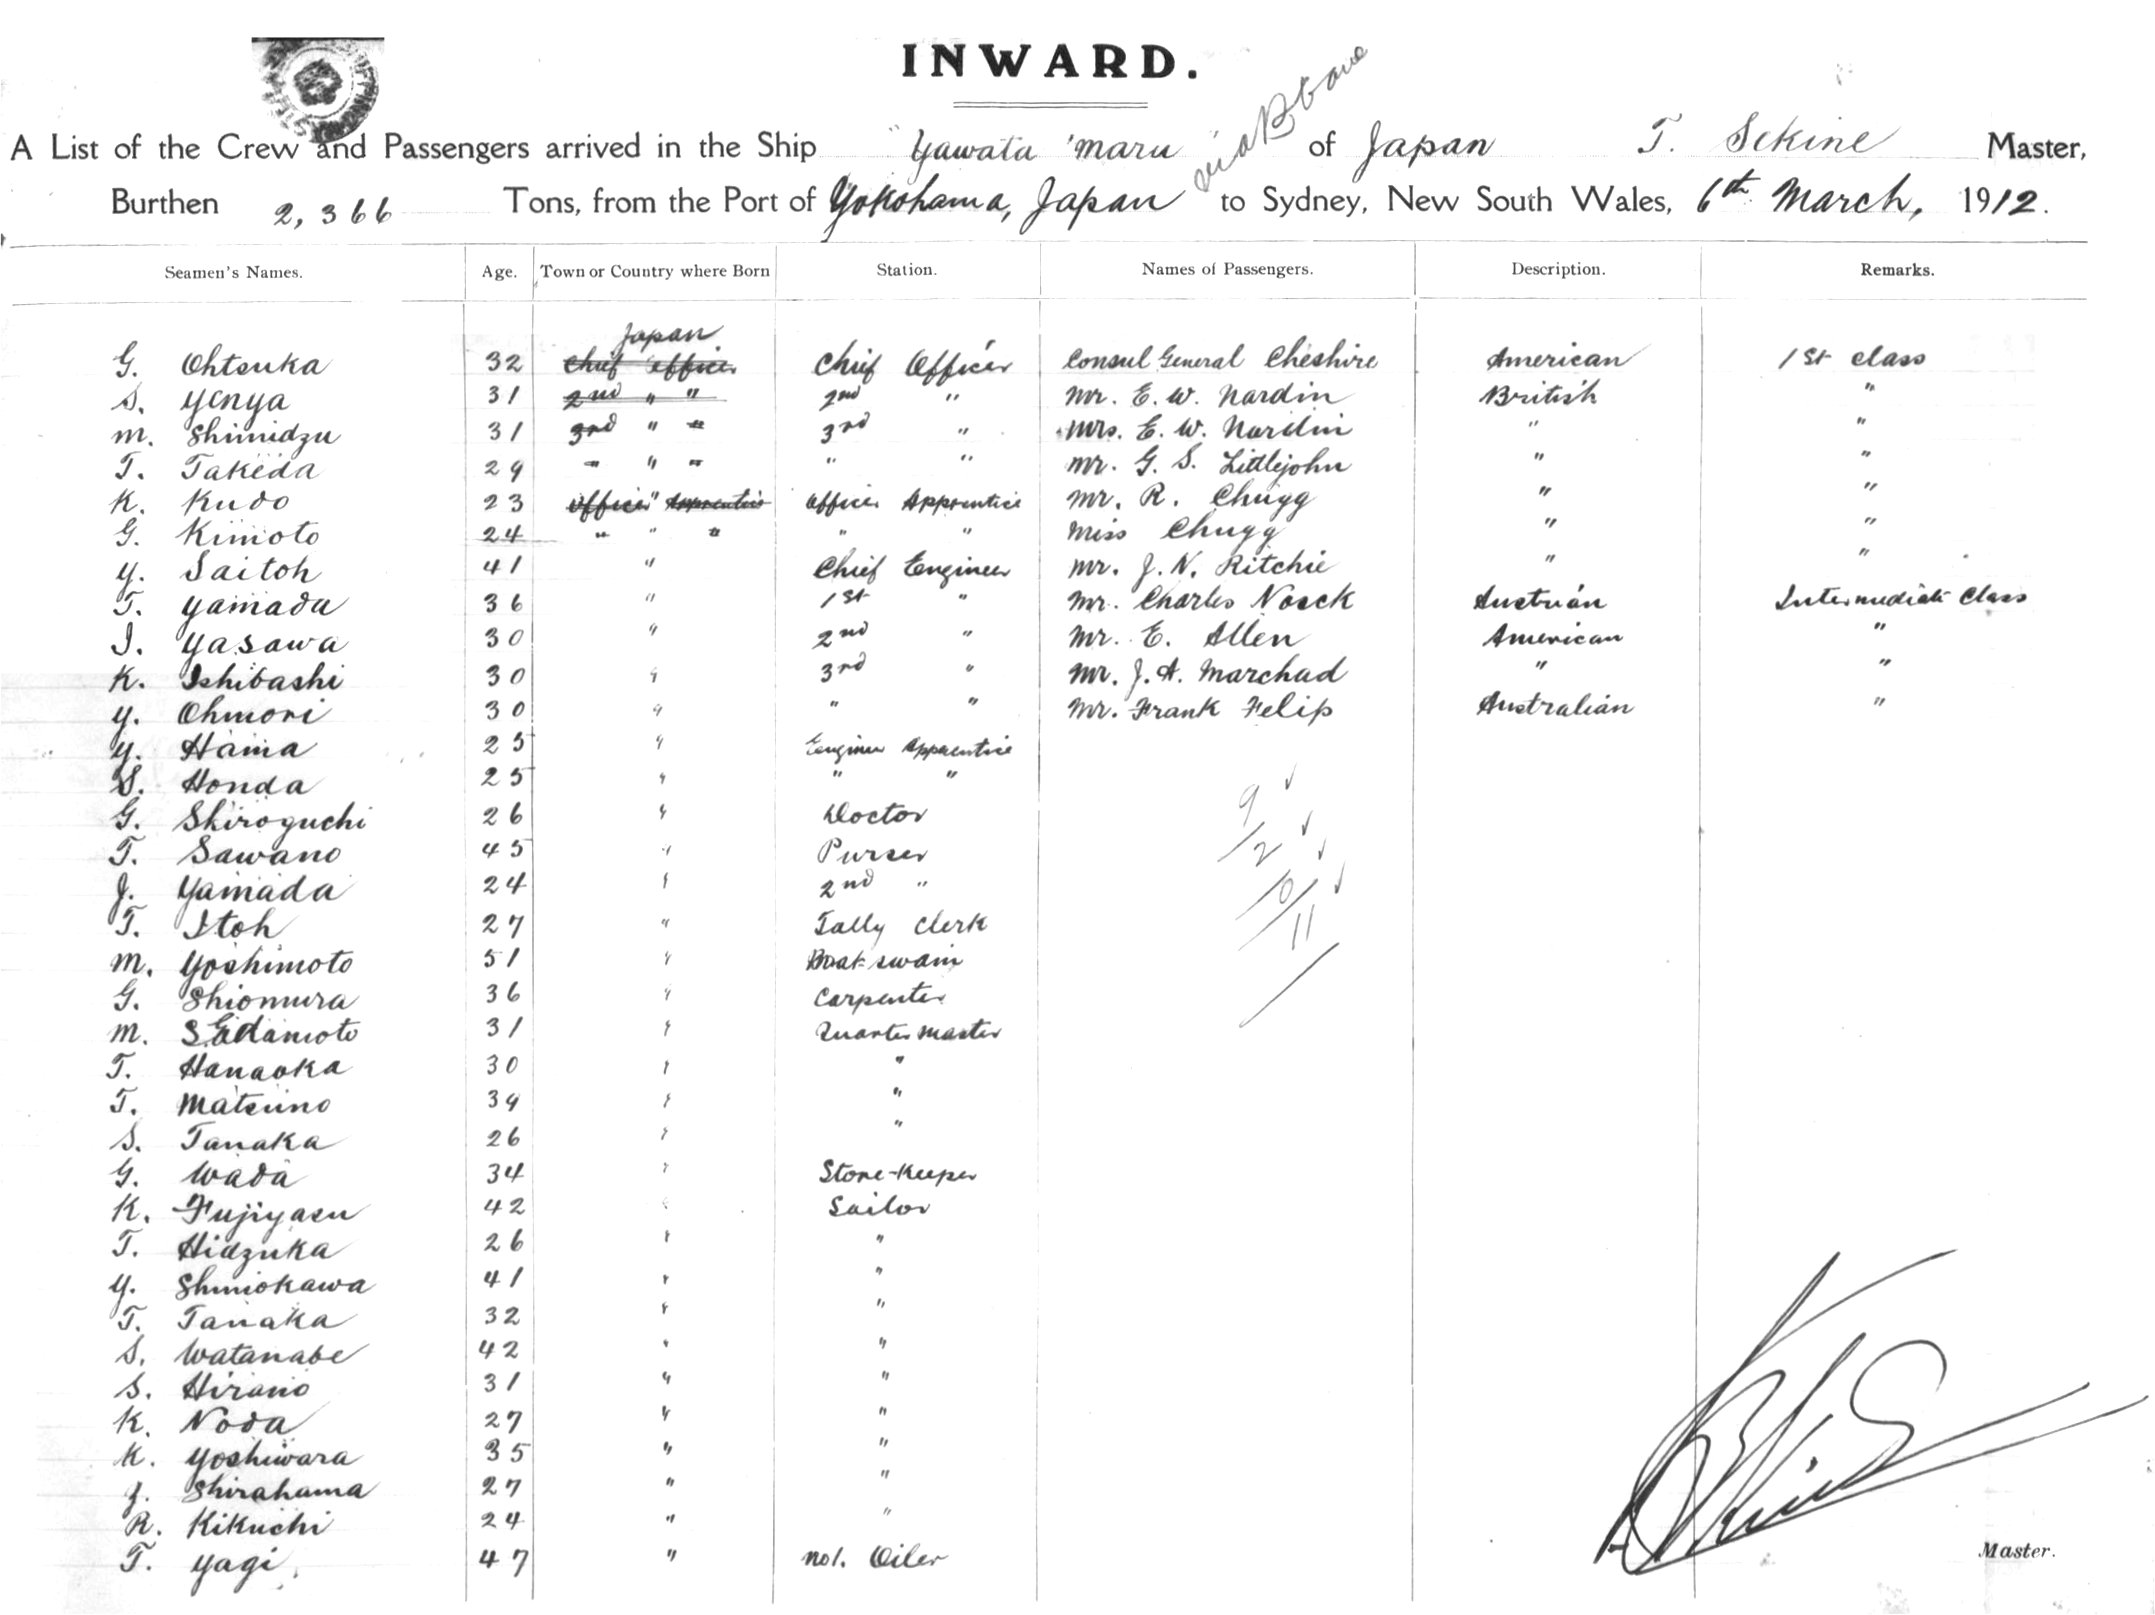 INWARD.
via Bbane
A List of the Crew and Passengers arrived in the Ship "Yawata Maru" of Japan T. Sekine Master,
Burthen 2,366 Tons, from the Port of Yokohama, Japan to Sydney, New South Wales, 6th March, 1912.
Seamen's Names. Age. Town or Country where Born Station. Names of Passengers. Description. Remarks.
Japan
G. Ohtsuka 32 Chief Officer Chief Officer Consul General Cheshire American 1st class
S. Yenya 31 2nd " " 2nd " Mr. E. W. Nardin British "
M. Shimidzu 31 3rd " " 3rd " Mrs. E. W. Nardin " "
T. Takeda 29 " " " " " Mr. G. S. Littlejohn " "
K. Kudo 23 Officer " Apprentice Officer Apprentice Mr. R. Chugg " "
G. Kimoto 24 " " " " " Miss Chugg " "
Y. Saitoh 41 " Chief Engineer Mr. J. N. Ritchie " "
T. Yamada 36 " 1st " Mr. Charles Noack Austrian Intermediate Class
I. Yasawa 30 " 2nd " Mr. E. Allen American "
K. Ishibashi 30 " 3rd " Mr. J. A. Marchad " "
Y. Ohmori 30 " " " Mr. Frank Felip Australian "
Y. Hama 25 " Engineer Apprentice
S. Honda 25 " " "
G. Shiroguchi 26 " Doctor
9
T. Sawano 45 " Purser
2
J. Yamada 24 " 2nd "
0
T. Itoh 27 " Tally Clerk
11
M. Yoshimoto 51 " Boatswain
G. Shiomura 36 " Carpenter
M. Sadamoto 31 " Quarter master
T. Hanaoka 30 " "
T. Matsuno 39 " "
S. Tanaka 26 " "
G. Wada 34 " Store-Keeper
K. Fujiyasu 42 " Sailor
T. Hidzuka 26 " "
Y. Shimokawa 41 " "
T. Tanaka 32 " "
S. Watanabe 42 " "
S. Hirano 31 " "
K. Noda 27 " "
K. Yoshiwara 35 " "
Shirahama 27 " "
R. Kikuchi 24 " "
T. Yagi 47 " No1. Oiler
Master.